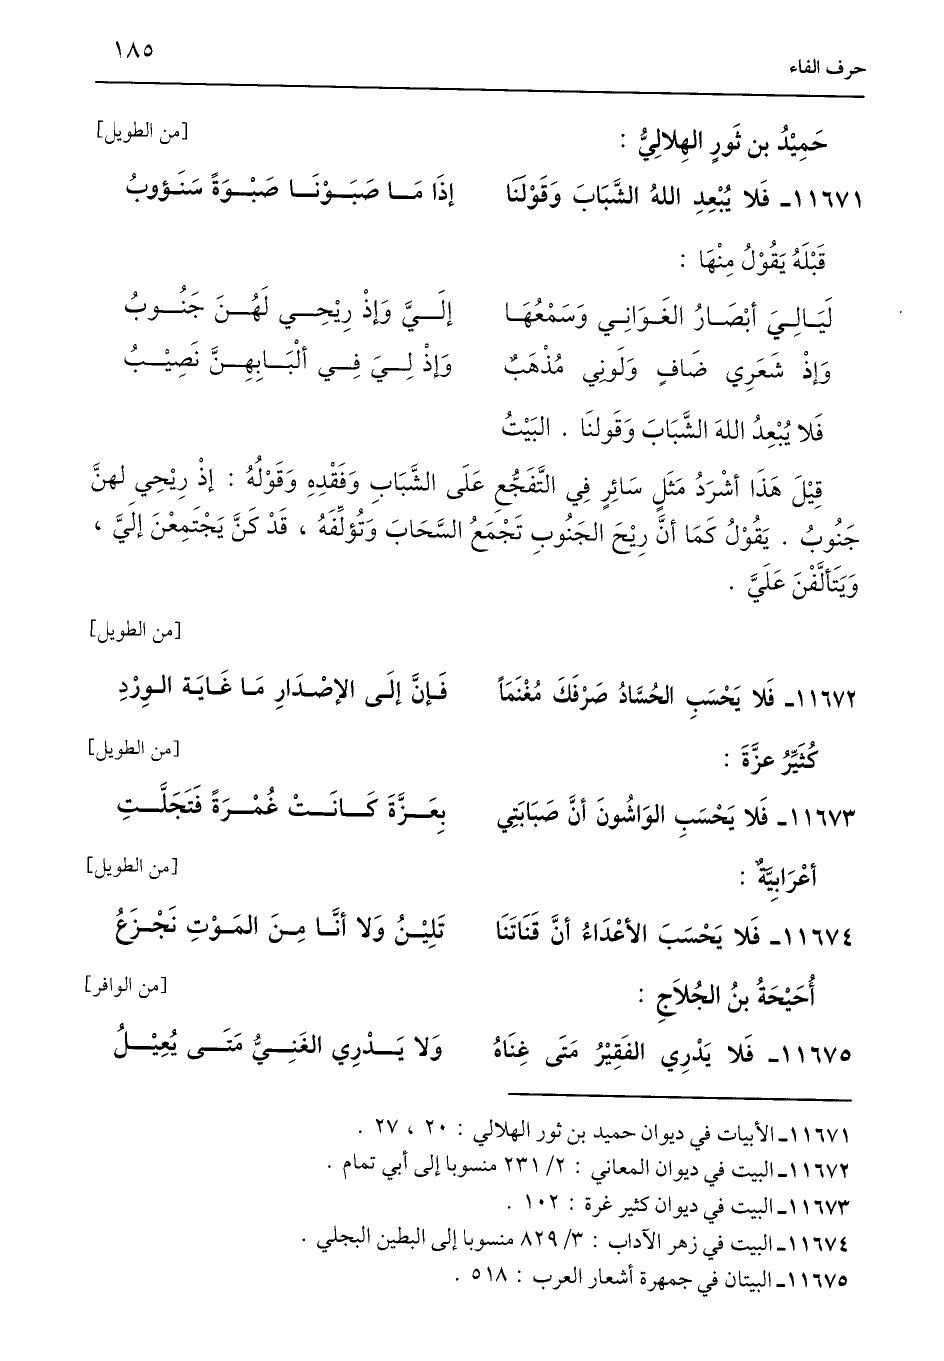 حرف الفاء ١٨٥
حَمِيْدُ بن ثَورٍ الهِلالِيُّ : [من الطويل]
١١٦٧١ـ فَلا يُبْعِدِ اللهُ الشَّبَابَ وَقَوْلَنَا إذَا مَـا صَبَـوْنَـا صَبْـوَةً سَنَـؤوبُ
قَبْلَهُ يَقُوْلُ مِنْهَا :
لَيَـالِـيَ أبْصَـارُ الغَـوَانِـي وَسَمْعُهَـا إلَـيَّ وَإذْ رِيْحِـي لَهُـنَ جَنُـوبُ
وَإذْ شَعَرِي ضَافٍ وَلَونِي مُذْهَبٌ وَإذْ لِـيَ فِـي ألْبَـابِهِـنَّ نَصِيْـبُ
فَلا يُبْعِدُ اللهَ الشَّبَابَ وَقَولنَا . البَيْتُ
قِيْلَ هَذَا أشْرَدُ مَثَلٍ سَائِرٍ فِي التَّفَجُّعِ عَلَى الشَّبَابِ وَفَقْدِهِ وَقَوْلُهُ : إذْ رِيْحِي لهنَّ
جَنُوبُ . يَقُوْلُ كَمَا أنَّ رِيْحَ الجَنُوبِ تَجْمَعُ السَّحَابَ وَتُؤلِّفَهُ ، قَدْ كنَّ يَجْتَمِعْنَ إليَّ ،
وَيَتَألَّفْنَ عَلَيَّ .
[من الطويل]
١١٦٧٢ـ فَلا يَحْسَبِ الحُسَّادُ صَرْفَكَ مُغْنَمَاً فَـإنَّ إلَـى الإصْـدَارِ مَـا غَـايَـة الـوِرْدِ
كُثَيِّرُ عزَّةَ : [من الطويل]
١١٦٧٣ـ فَلا يَحْسَبِ الوَاشُونَ أنَّ صَبَابَتِي بِعَـزَّةَ كَـانَـتْ غُمْـرَةً فَتَجَلَّـتِ
أعْرَابِيَّةٌ : [من الطويل]
١١٦٧٤ـ فَلا يَحْسَبَ الأعْدَاءُ أنَّ قَنَاتَنَا تَلِيْـنُ وَلا أنَّـا مِـنَ المَـوْتِ نَجْـزَعُ
أُحَيْحَةُ بنُ الجُلاَحِ : [من الوافر]
١١٦٧٥ـ فَلا يَدْرِي الفَقِيْرُ مَتَى غِنَاهُ وَلا يَـدْرِي الغَنِـيُّ مَتَـى يُعِيْـلُ
١١٦٧١ـ الأبيات في ديوان حميد بن ثور الهلالي : ٢٠ ، ٢٧ .
١١٦٧٢ـ البيت في ديوان المعاني : ٢/ ٢٣١ منسوبا إلى أبي تمام .
١١٦٧٣ـ البيت في ديوان كثير غرة : ١٠٢ .
١١٦٧٤ـ البيت في زهر الآداب : ٣/ ٨٢٩ منسوبا إلى البطين البجلي .
١١٦٧٥ـ البيتان في جمهرة أشعار العرب : ٥١٨ .